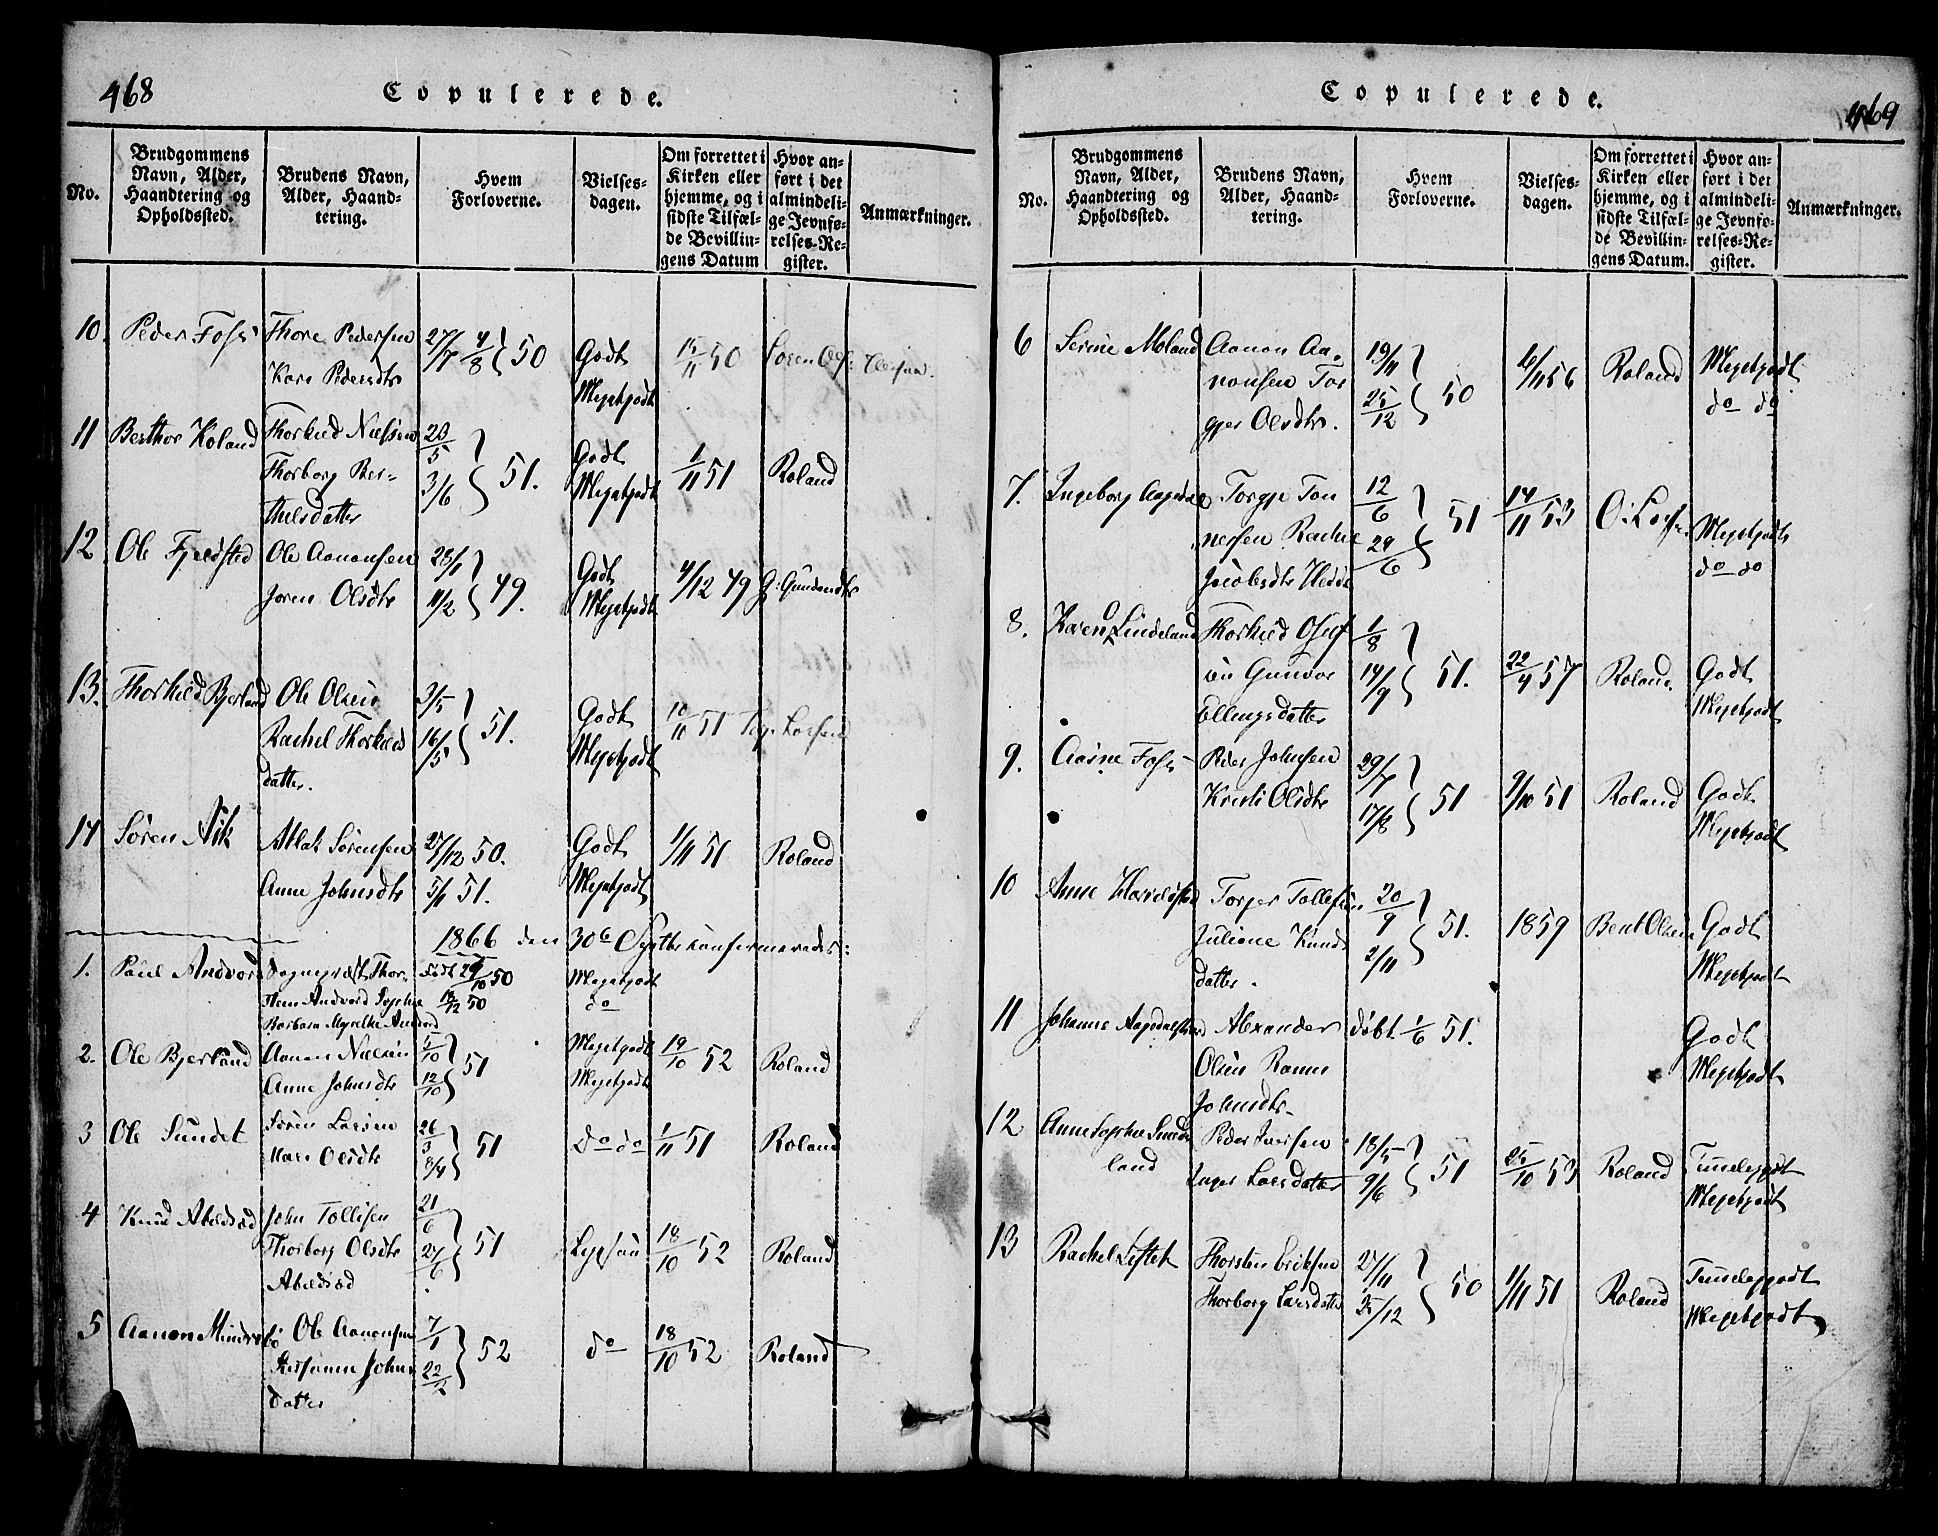 468
Copulerede.
No.
Brudgommens Navn, Alder, Haandtering og Opholdssted.
Brudens Navn, Alder, Haandtering.
Hvem Forloverne.
Vielsesdagen.
Om forrettet i Kirken eller hjemme, og i sidste Tilfælde Bevillingens Datum
Hvor anført i det almindelige Jevnførelses-Register.
Anmærkninger.
10. Peder Foss Thore Pedersen 27/7 4/8 } 50 Godt 15/11 50 Søren
Kari Pedersdtr Megetgodt
11 Berthor Roland Thorkild Nielsen 23/5 Godt 1/11 51 Roland
Thorborg Ber- 3/6 } 51. Megetgodt
thelsdatter
12 Ole Fjeldsted Ole Aanonsen 28/1 Godt 4/12 49 G: Gundersdtr
Joren Olsdtr 11/2 } 49. Megetgodt
13. Thorkild Bjerland Ole Olsen 3/5 Godt 10/10 51
Rachel Thorkilds 16/5 } 51. Megetgodt
datter.
14 Søren Aik Atlak Sørensen 27/12 50. Godt 1/11 51 Roland
Anne Johnsdtr 5/1 51. Megetgodt
1866 den 30te Septbr konfirmerede:
1. Paul Andvord Sogneprest Thor- født 29/10 50 Megetgodt
Andvord Sophie 18/12 50 do
Barbara Myrethe Andvord
2. Ole Bjerland Aanon Nielsen 5/10 Megetgodt 19/10 52 Roland
Anne Johnsdtr 12/10 } 51 Megetgodt
3 Ole Sundet Søren Larsen 26/3 do do 1/11 51 Roland
Mari Olsdtr 8/4 } 51
4 Knud Abelsæd John Tollisen 21/6
Thorborg Olsdtr 27/6 } 51 18/10 52 Roland
Abelsæd
5 Aanon Mindrebø Ole Aanonsen 7/1 do 18/10 52 Roland
Johns 22/2 } 52
datter
Copulerede.
469
No.
Brudgommens Navn, Alder, Haandtering og Opholdssted.
Brudens Navn, Alder, Haandtering.
Hvem Forloverne.
Vielsesdagen.
Om forrettet i Kirken eller hjemme, og i sidste Tilfælde Bevillingens Datum.
Hvor anført i det almindelige Jevnførelses-Register.
Anmærkninger.
6 Serine Moland Aanon Aa- 19/11 6/11 56 Roland Megetgodt
nonsen Tor 25/12 } 50 do do
gjer Olsdtr.
7. Ingeborg Aagedal Torgje Ton 12/6 14/11 53 Megetgodt
nessen Rachel 29/6 } 51 do do
Jacobsdtr
8. Karen Lindeland Thorkild 1/8
Gunvor 14/9 } 51. 22/4 57 Roland. Godt
Ellingsdatter Megetgodt
9. Aasne Foss Peder Johnsen 29/7 9/10 51 Roland Godt
Kirsti Olsdtr 17/8 } 51 Megetgodt
10 Anne Torjer Tollefsen 20/9 1859 Bent Olsen Godt
Juliane Knuds 2/11 } 51. Megetgodt
datter.
11 Johanne Alexander døbt 1/6 51. Godt
Olsen Megetgodt
Johnsdtr
12 Anne Sophie Smede Peder Iversen 18/5 25/10 53 Roland Temmeliggodt
land Inger Larsdatter 9/6 } 51 Megetgodt
13 Rachel Liftet Thorsten Eriksen 27/11 1/11 51 Roland Temmeliggodt
Thorborg Larsdatter 25/12 } 50 Megetgodt